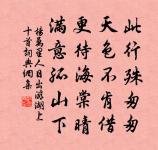 此行殊匆匆
天色不肯借
更待海棠晴
滿意孤山下
楊萬里人日出游湖上
十首詞典網集